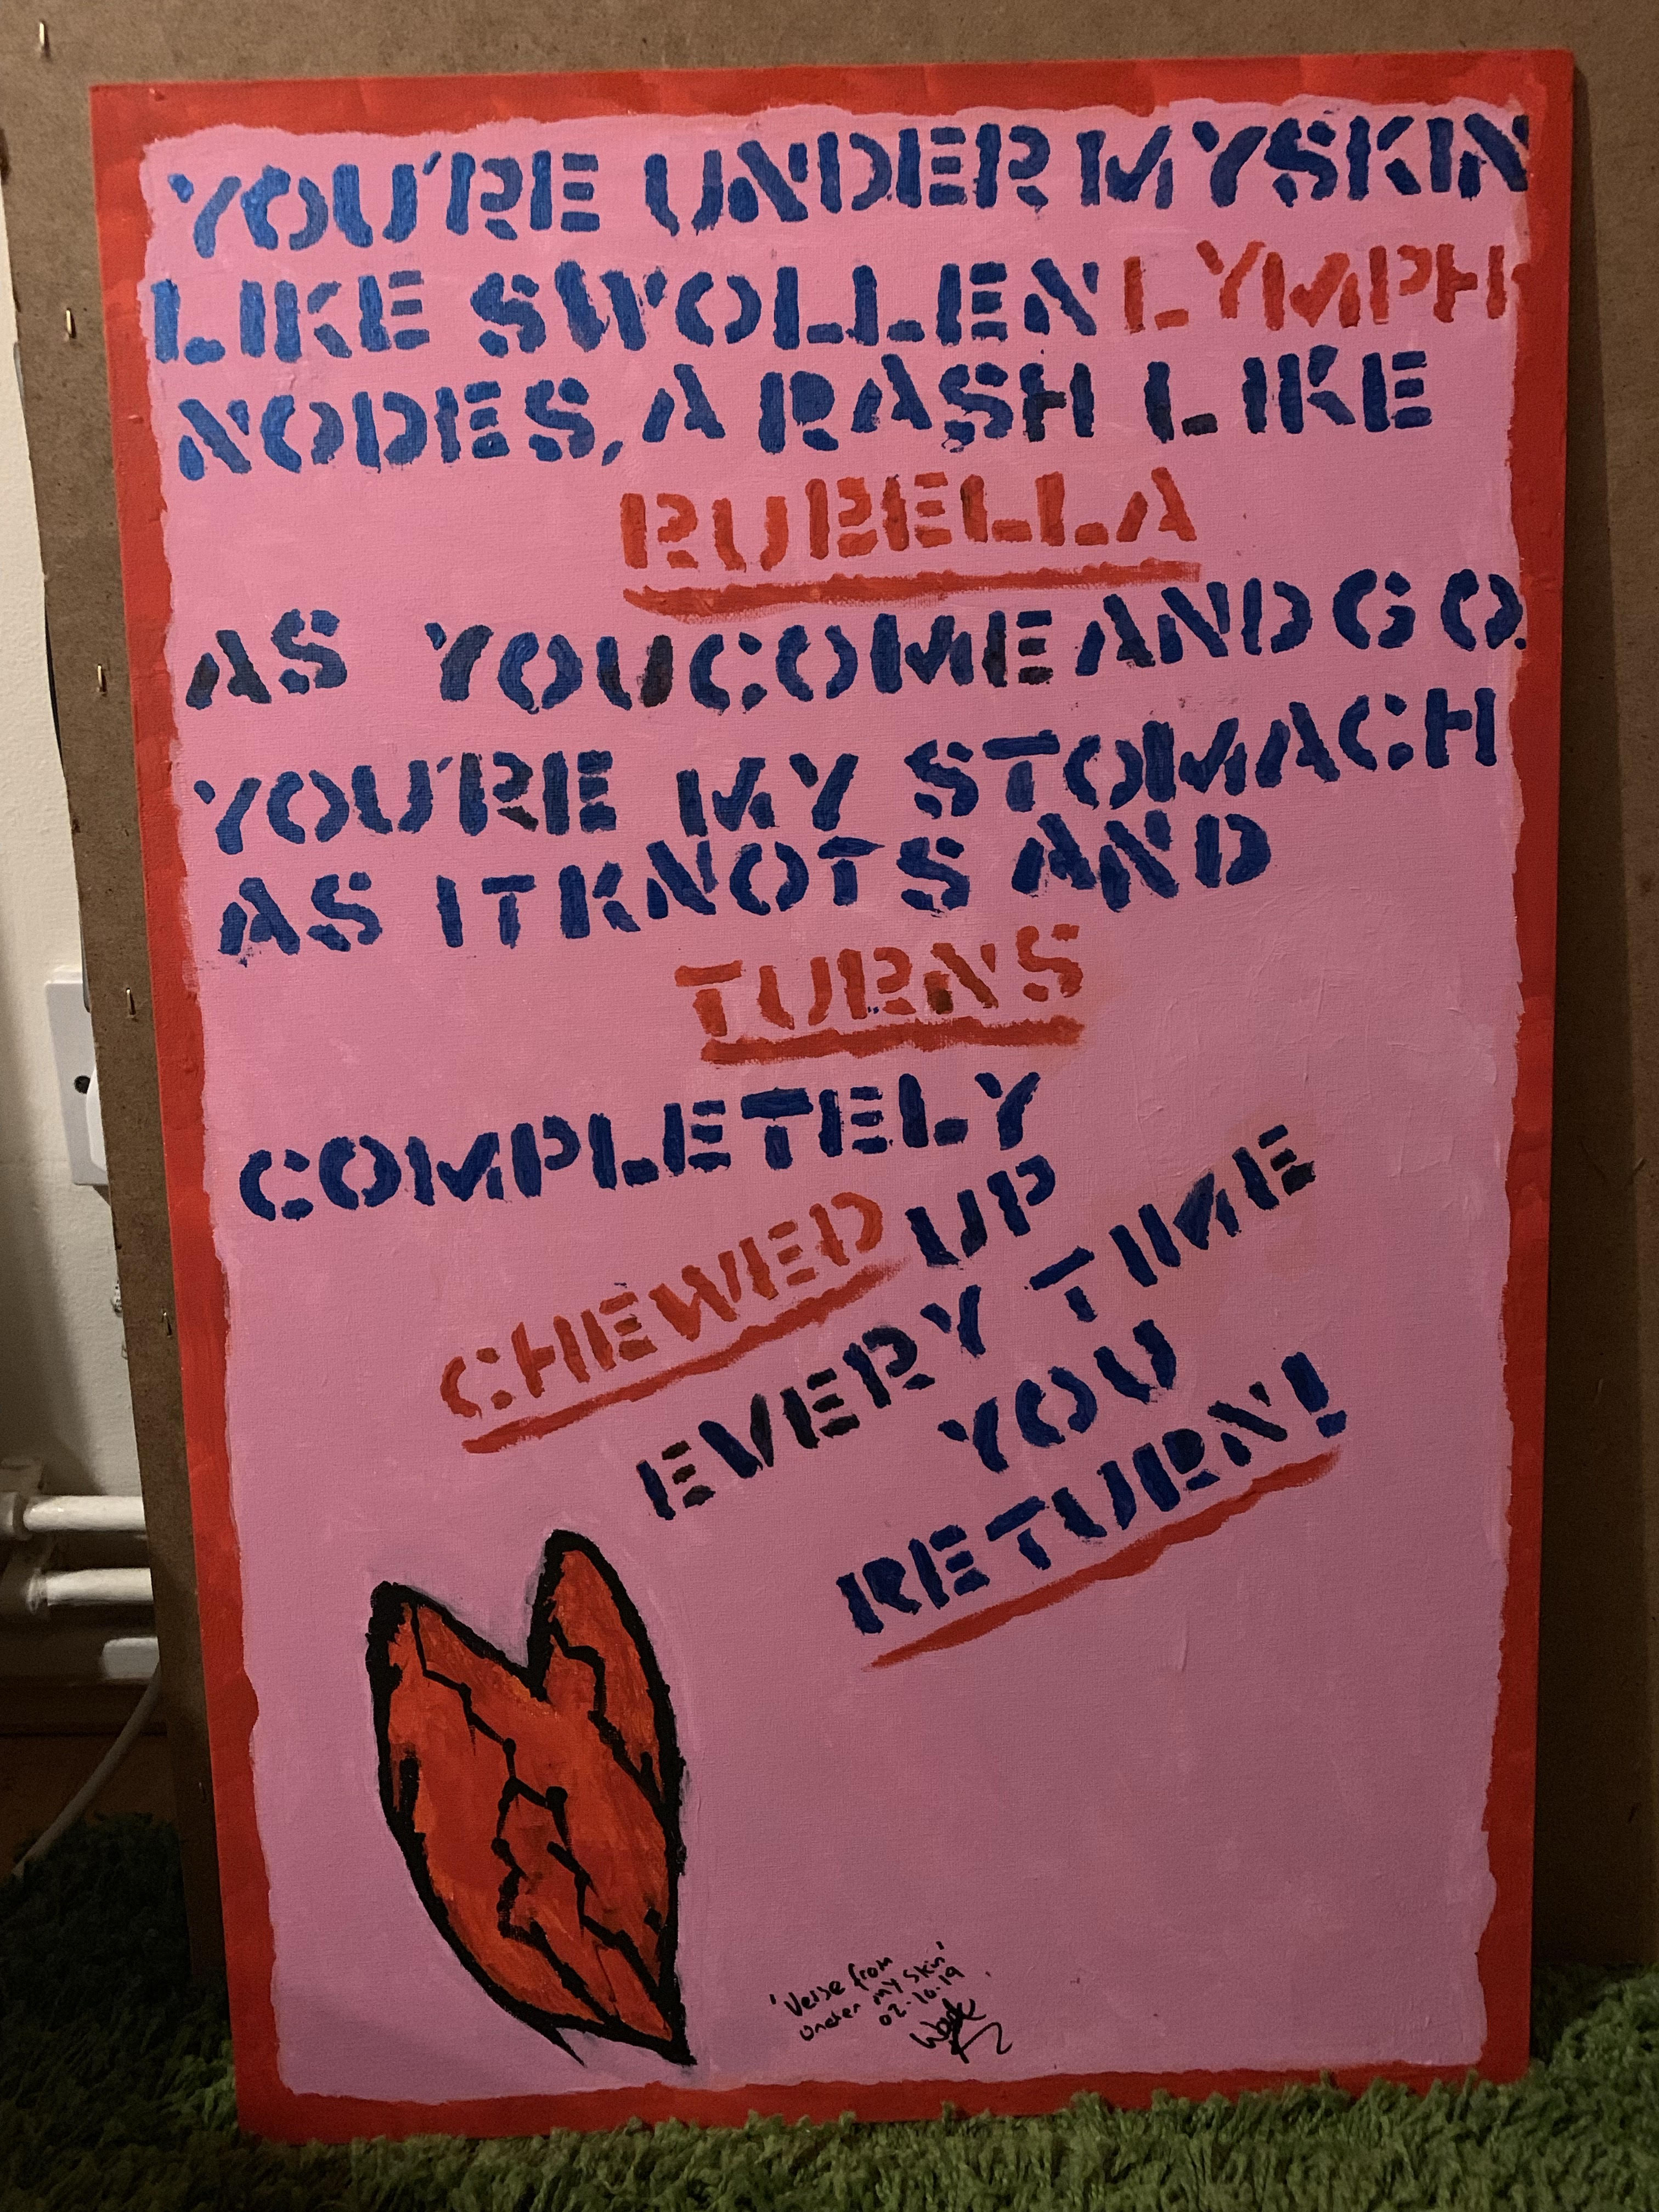 YOU'RE UNDER MY SKIN
LIKE SWOLLEN LYMPH
NODES, A RASH LIKE
RUBELLA
AS YOU COME AND GO.
YOU'RE MY STOMACH
AS IT KNOTS AND
TURNS
COMPLETELY
CHEWED UP
EVERY TIME
YOU
RETURN!
'Verse from
Under My Skin'
02.10.19
Wade